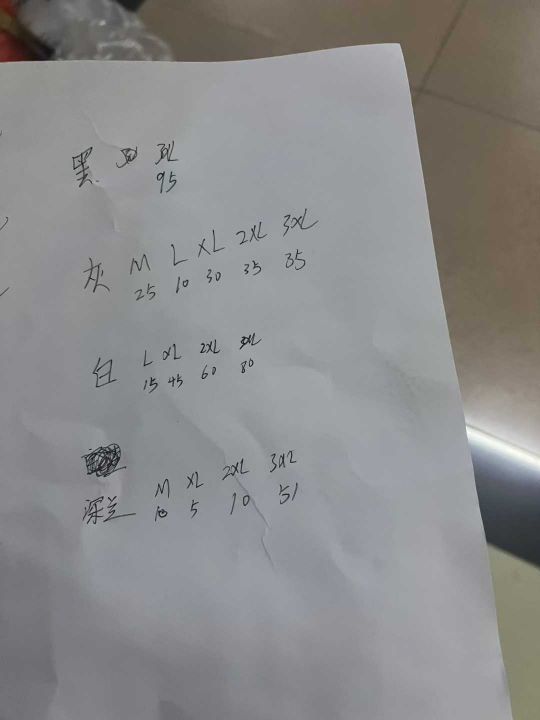 黑. 3XL
95
灰 M L XL 2XL 3XL
25 10 30 35 35
白 L XL 2XL 3XL
15 45 60 80
深兰 M XL 2XL 3XL
10 5 10 51